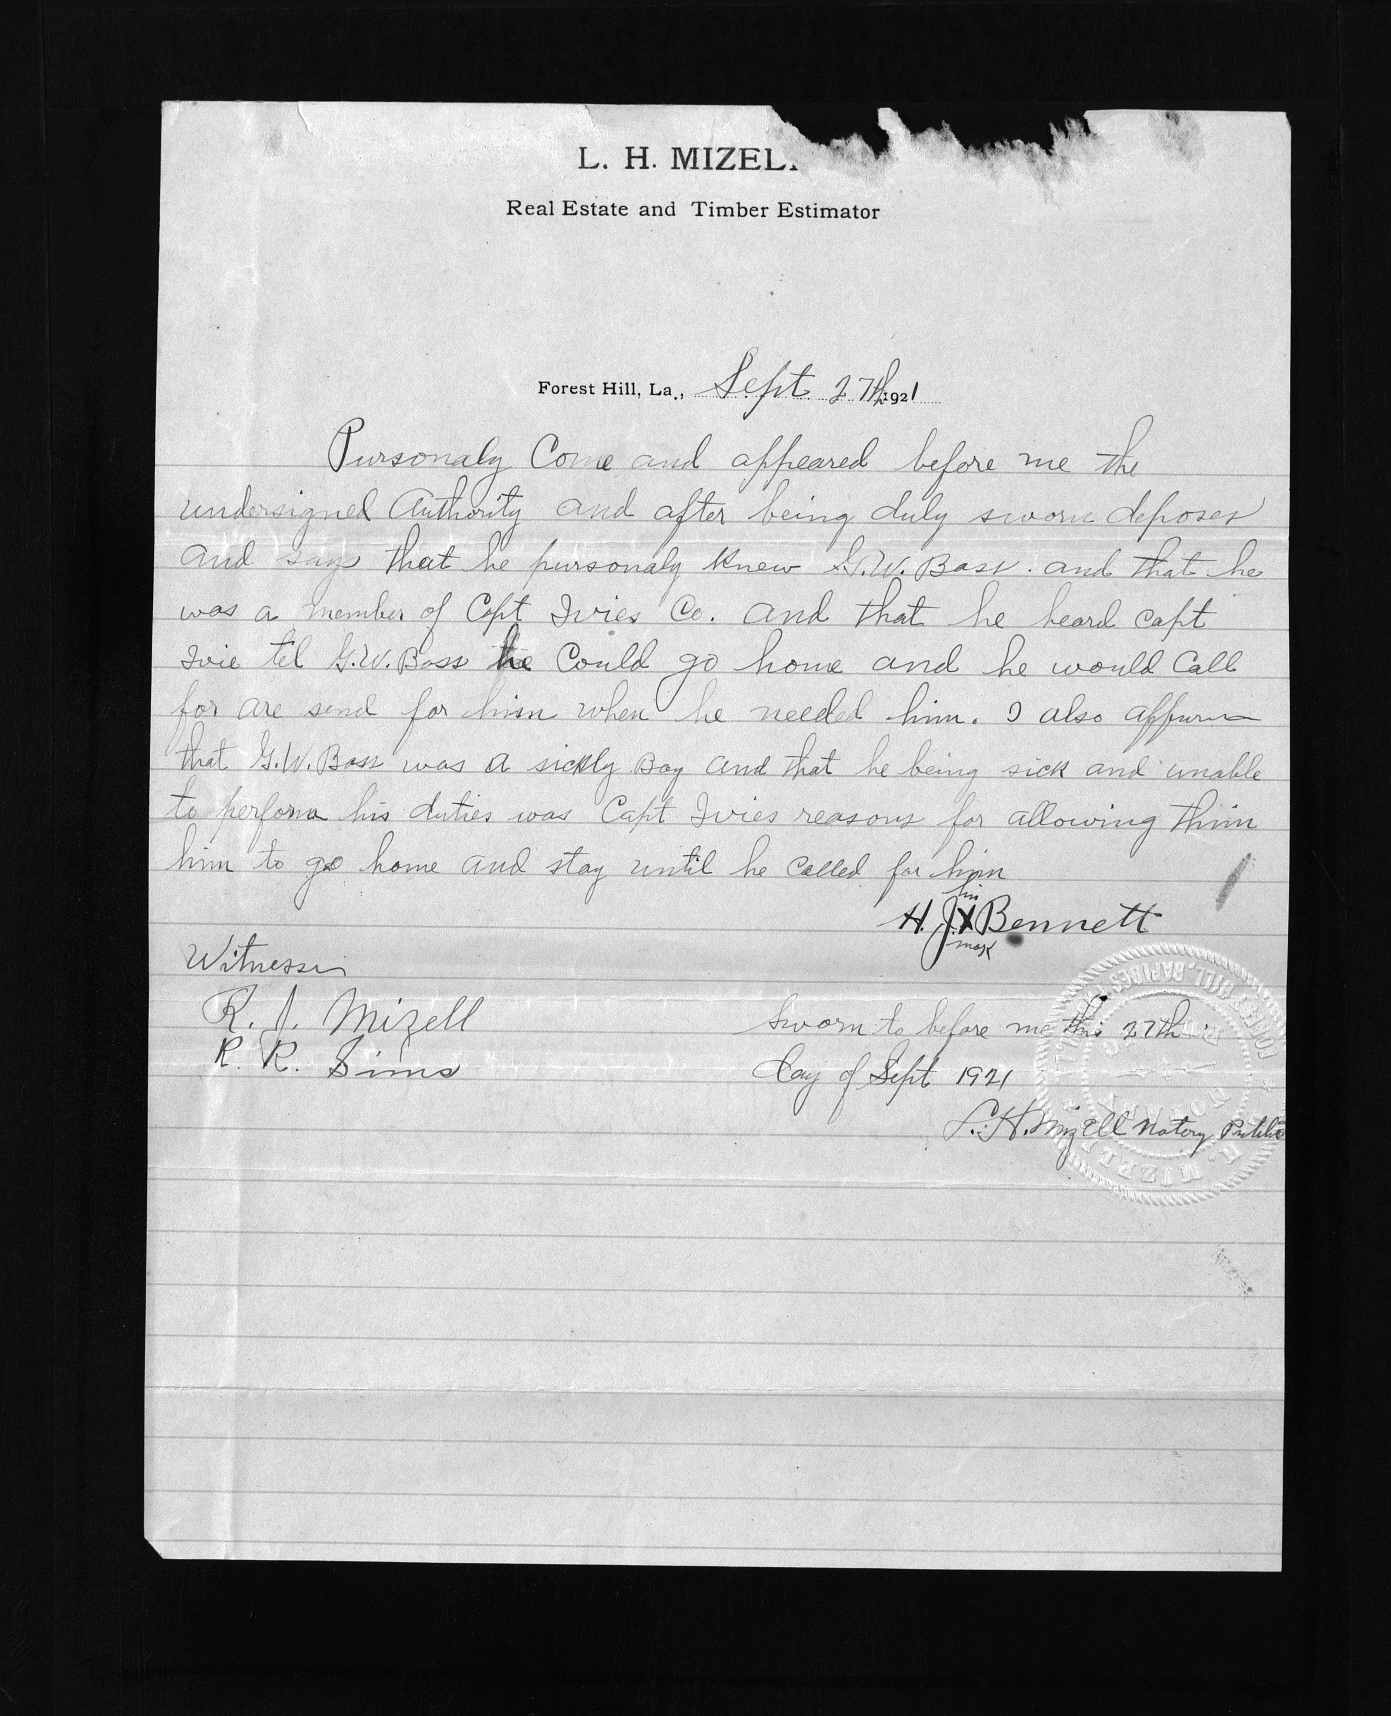 L. H. MIZELL
Real Estate and Timber Estimator
Forest Hill, La., Sept 27th 1921
Pursonaly Come and appeared before me the
undersigned Authority and after being duly sworn deposes
and says that he pursonaly Knew G.W. Bass. and that he
was a member of Capt Ivies Co. and that he heard Capt
Ivie tel G.W. Bass he Could go home and he would Call
for are send for him when he needed him. I also affirm
that G.W. Bass was a sickly Boy and that he being sick and unable
to perform his duties was Capt Ivies reasons for allowing thim
him to go home and stay until he Called for him
his
H. J. X Bennett
mark
Witnesses
R. J. Mizell
R. R. Sims
Sworn to before me this 27th
day of Sept 1921
L. H. Mizell Notary Public